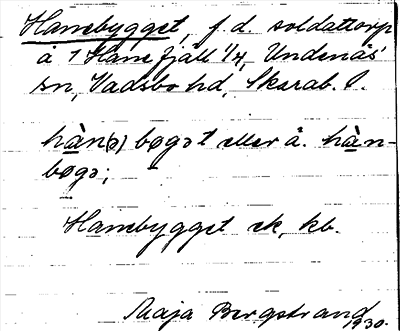 Hanebygget, f.d. soldattorp
å 1 Hanefjäll 1/4, Undenäs'
sn, Vadsbo hd, Skarab. l.
hàn(ə) bøgət eller å. hàn-
bøgə;
Hanebygget ek, kb.
Maja Bergstrand
1930.